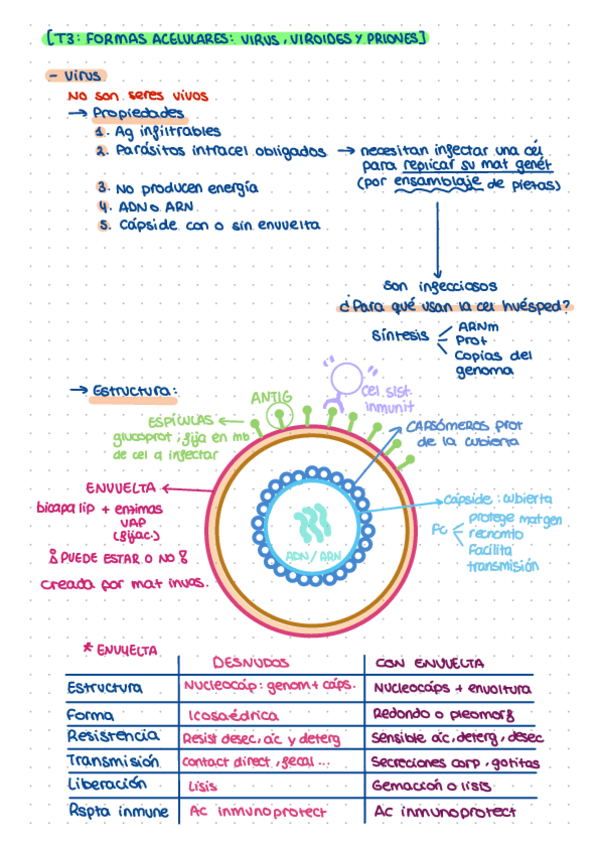 [T3: FORMAS ACELULARES: VIRUS, VIROIDES Y PRIONES]
- Virus
NO son seres vivos
→ Propiedades
1. Ag infiltrables
2. Parásitos intracel obligados → necesitan infectar una cél
para replicar su mat genét
(por ensamblaje de piezas)
3. No producen energía
4. ADN o ARN
5. Cápside con o sin envuelta
Son infecciosos
¿Para qué usan la cel huésped?
Síntesis
ARNm
Prot
Copias del
genoma
→ Estructura:
ANTIG
cel sist.
inmunit
ESPÍCULAS
glucoprot; fija en mb
de cel a infectar
CAPSÓMEROS prot
de la cubierta
ENVUELTA
bicapa lip + enzimas
VAP
(fijac.)
¡PUEDE ESTAR O NO!
creada por mat invas.
Cápside: cubierta
Fc
protege mat gen
reconoto
Facilita
transmisión
ADN/ARN
* ENVUELTA
DESNUDOS CON ENVUELTA
Estructura Nucleocáp: genom + cáps. Nucleocáps + envoltura
Forma Icosaédrica Redondo o pleomorf
Resistencia Resist desec, ác y deterg Sensible ác, deterg, desec
Transmisión contact direct, fecal... Secreciones corp, gotitas
Liberación Lisis Gemación o lisis
Rspta inmune Ac inmunoprotect Ac inmunoprotect